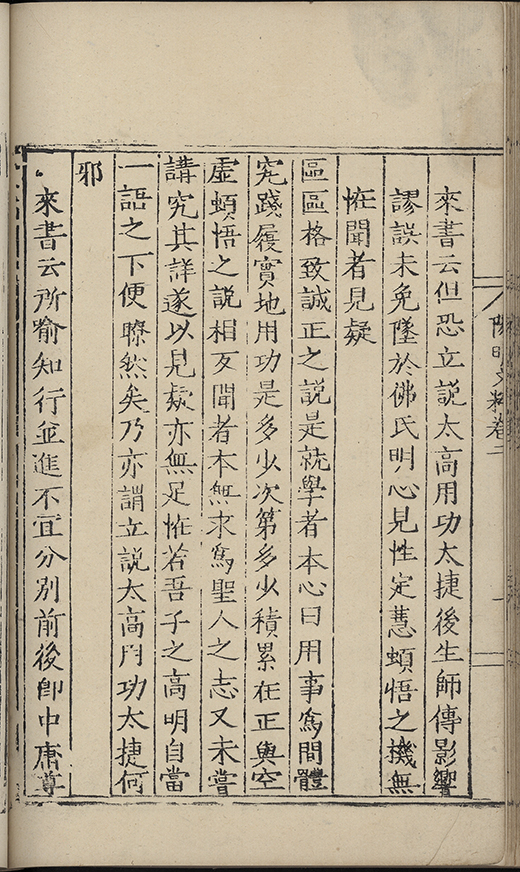 陽明文粹卷二
來書云但恐立說太高用功太捷後生師傳影響
謬誤未免墜於佛氏明心見性定慧頓悟之機無
恠聞者見疑
區區格致誠正之說是就學者本心日用事爲間體
究踐履實地用功是多少次第多少積累在正與空
虛頓悟之說相反聞者本無求爲聖人之志又未嘗
講究其詳遂以見疑亦無足恠若吾子之高明自當
一語之下便瞭然矣乃亦謂立說太高用功太捷何
邪
來書云所喻知行並進不宜分別前後卽中庸尊